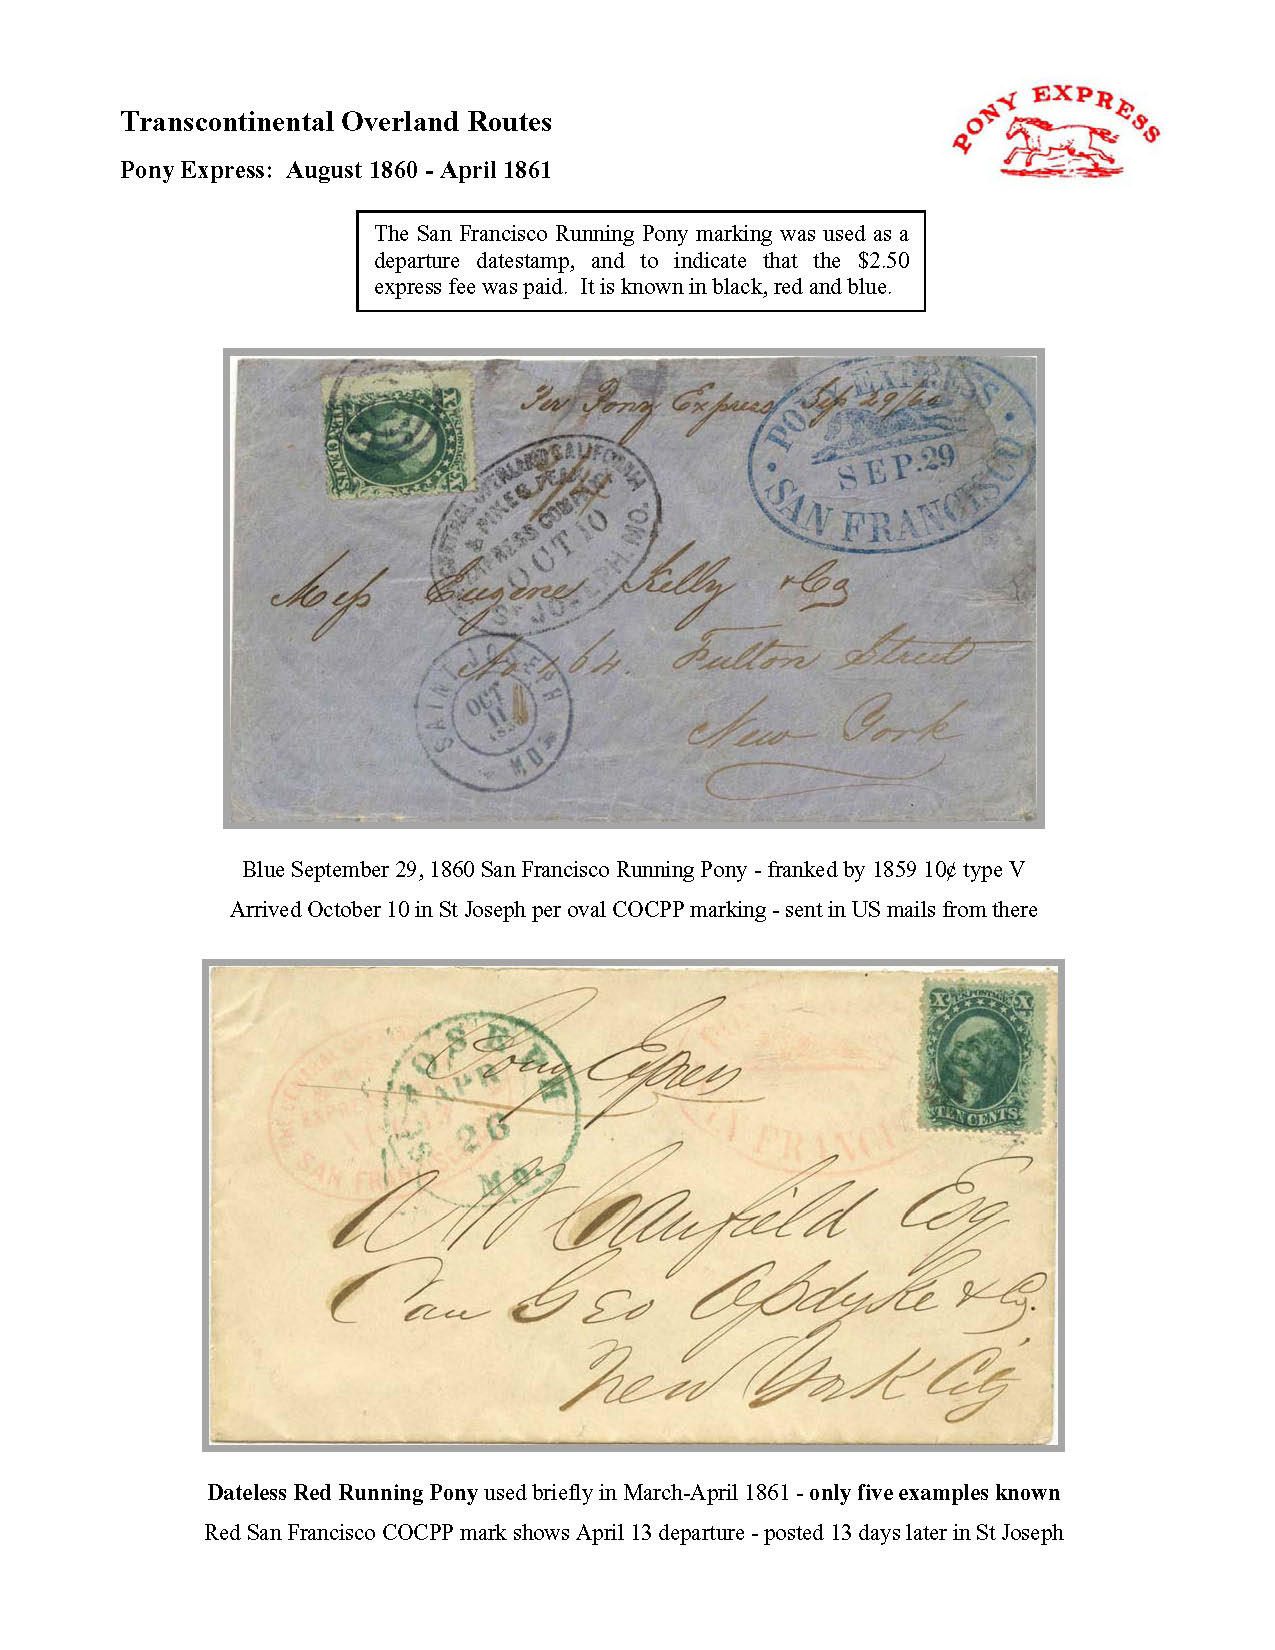 Transcontinental Overland Routes
PONY EXPRESS
Pony Express: August 1860 - April 1861
The San Francisco Running Pony marking was used as a
departure datestamp, and to indicate that the $2.50
express fee was paid. It is known in black, red and blue.
Per Pony Express Sep 29/60
X TEN CENTS X
PONY EXPRESS
SEP. 29
SAN FRANCISCO
CENTRAL OVERLAND CALIFORNIA
& PIKES PEAK
EXPRESS COMPANY
OCT 10
ST JOSEPH. MO.
Mess Eugene Kelly & Co
No 164. Fulton Street
New York
SAINT JOSEPH
OCT
11
MO
Blue September 29, 1860 San Francisco Running Pony - franked by 1859 10¢ type V
Arrived October 10 in St Joseph per oval COCPP marking - sent in US mails from there
Pony Express
X U.S. POSTAGE X
TEN CENTS
JOSEPH
APR
26
Mo.
EXPRESS
SAN FRANCISCO
AN FRANCISC
W Canfield Esq
Care Geo Opdyke & Co.
New York City
Dateless Red Running Pony used briefly in March-April 1861 - only five examples known
Red San Francisco COCPP mark shows April 13 departure - posted 13 days later in St Joseph